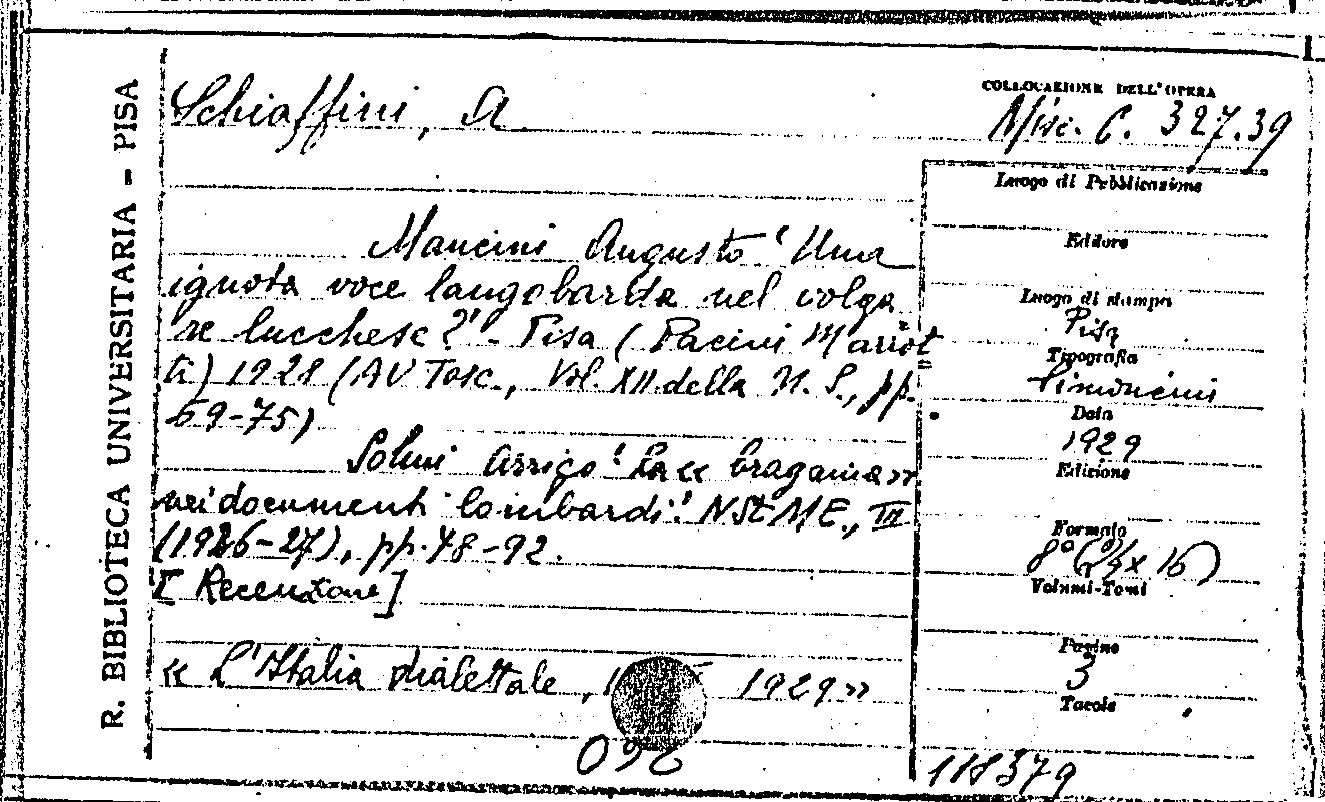 R. BIBLIOTECA UNIVERSITARIA - PISA
Schiaffini, A
COLLOCAZIONE DELL'OPERA
Misc. C. 327.39
Mancini Augusto 'Una
ignota voce langobarda nel volga
re lucchese?' - Pisa (Pacini Mariot
ti) 1928 (AU Tosc., Vol. XII della N. S., pp.
69-75)
Solmi Arrigo 'La « bragania »
nei documenti lombardi'. NStME., III
(1926-27), pp. 48-92.
[Recenzione]
« L'Italia dialettale, 1929»
096
Luogo di Pubblicazione
Editore
Luogo di stampa
Pisa
Tipografia
Simoncini
Data
1929
Edizione
Formato
8° (24x16)
Volumi-Tomi
Pagine
3
Tavole
118379